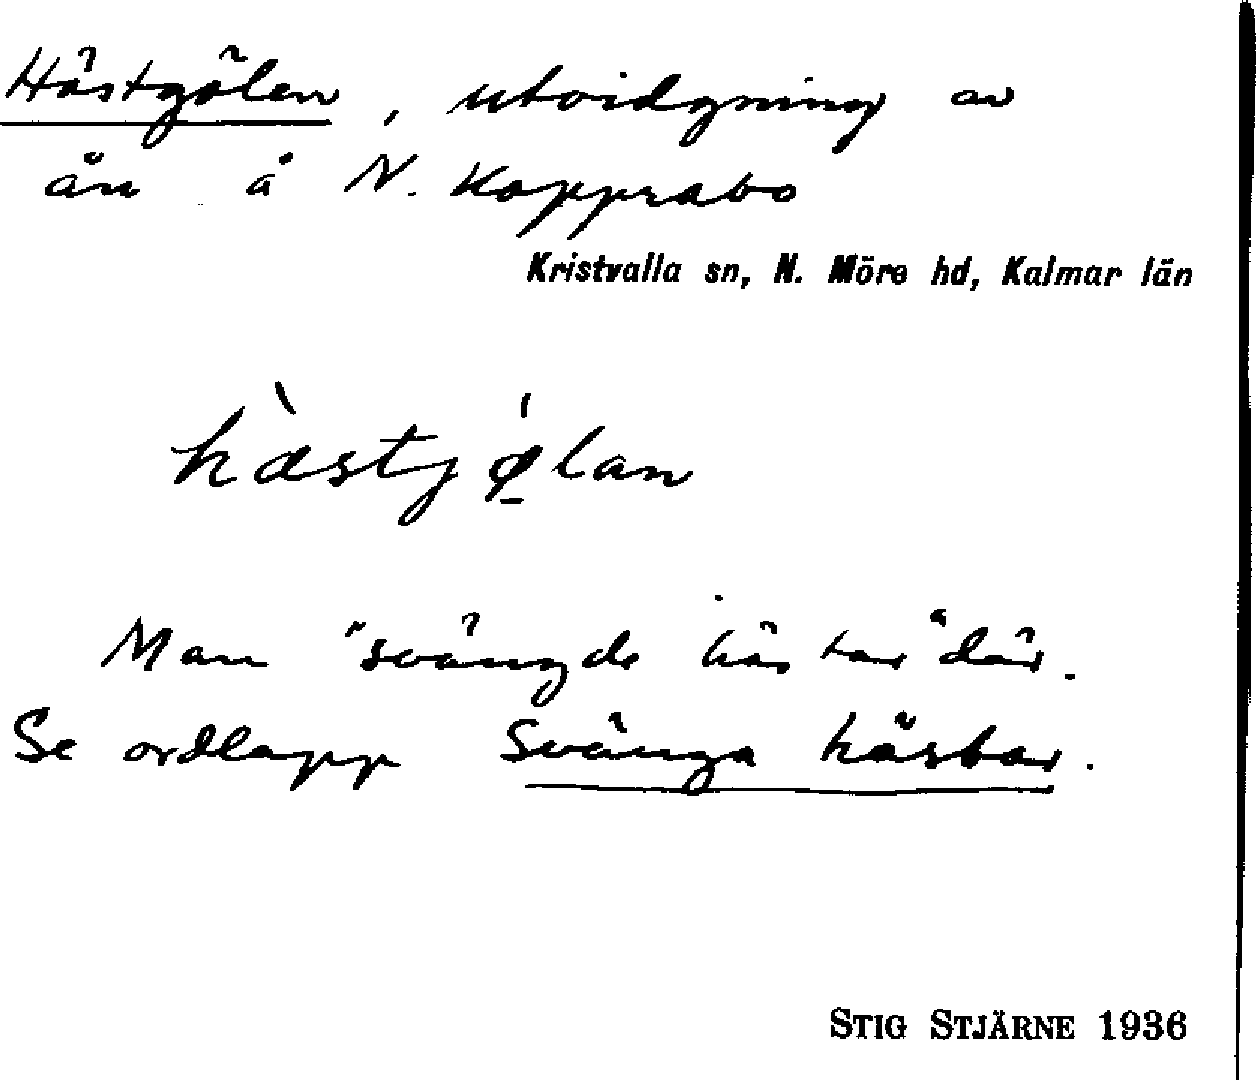 Hästgölen, utvidgning av
ån å N. Kopprabo
Kristvalla sn, N. Möre hd, Kalmar län
hæ̀stjǿ̠lan
Man "svängde hästar" där.
Se ordlapp Svänga hästar.
STIG STJÄRNE 1936